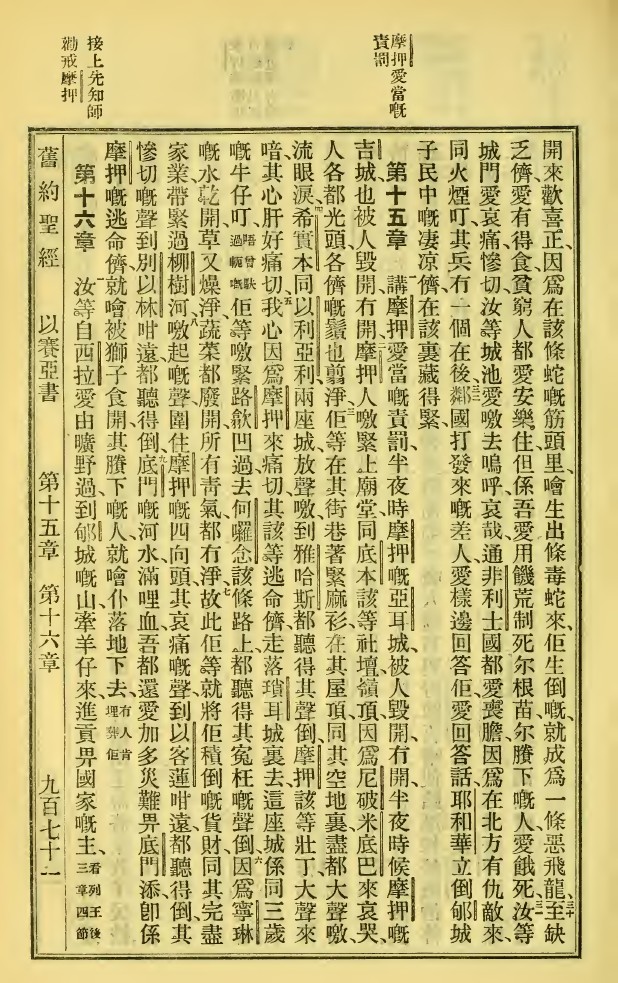 摩押愛當嘅
責罰
接上先知師
勸戒摩押
開來歡喜正、因爲在該條蛇嘅筋頭里、噲生出條毒蛇來、佢生倒嘅、就成爲一條惡飛龍、三十至缺
乏儕愛有得食、貧窮人都愛安樂住、但係吾愛用饑荒制死尔根苗、尔賸下嘅人愛餓死、三一汝等
城門愛哀痛慘切、汝等城池愛噭去、嗚呼哀哉、通非利士國都愛喪膽、因爲在北方有仇敵來、
同火煙叮、其兵有一個在後、三二鄰國打發來嘅差人、愛樣邊回答佢、愛回答話、耶和華立倒郇城、
子民中嘅凄凉儕在該裏藏得緊、
第十五章 講摩押愛當嘅責罰、半夜時摩押嘅亞耳城、被人毀開有開、半夜時候摩押嘅
吉城也被人毀開有開、摩押人噭緊上廟堂、同底本該等社壇嶺頂、因爲尼破米底巴來哀哭、
人各都光頭、各儕嘅鬚也翦淨、三佢等在其街巷著緊麻衫、在其屋頂、同其空地裏盡都大聲噭、
流眼淚、四希實本同以利亞利兩座城放聲噭、到雅哈斯都聽得其聲倒、摩押該等壯丁大聲來
喑、其心肝好痛切、五我心因爲摩押來痛切、其該等逃命儕走落瑣耳城裏去、這座城係同三歲
嘅牛仔叮、唔曾馱過軛嘅佢等噭緊路歕凹過去、何囉念該條路上、都聽得其冤枉嘅聲倒、六因爲寧琳
嘅水乾開、草又燥淨、蔬菜都廢開、所有青氣都有淨、七故此佢等就將佢積倒嘅貨財、同其完盡
家業、帶緊過柳樹河、八噭起嘅聲圍住摩押嘅四向頭、其哀痛嘅聲到以客蓮咁遠都聽得倒、其
慘切嘅聲到別以林咁遠、都聽得倒、九底門嘅河水滿哩血、吾都還愛加多災難畀底門添、卽係
摩押嘅逃命儕、就噲被獅子食開、其賸下嘅人、就噲仆落地下去、有人肯埋葬佢
第十六章 一汝等自西拉愛由曠野過到郇城嘅山、牽羊仔來進貢畀國家嘅主、看列王後三章四節
舊約聖經 以賽亞書 第十五章 第十六章 九百七十一